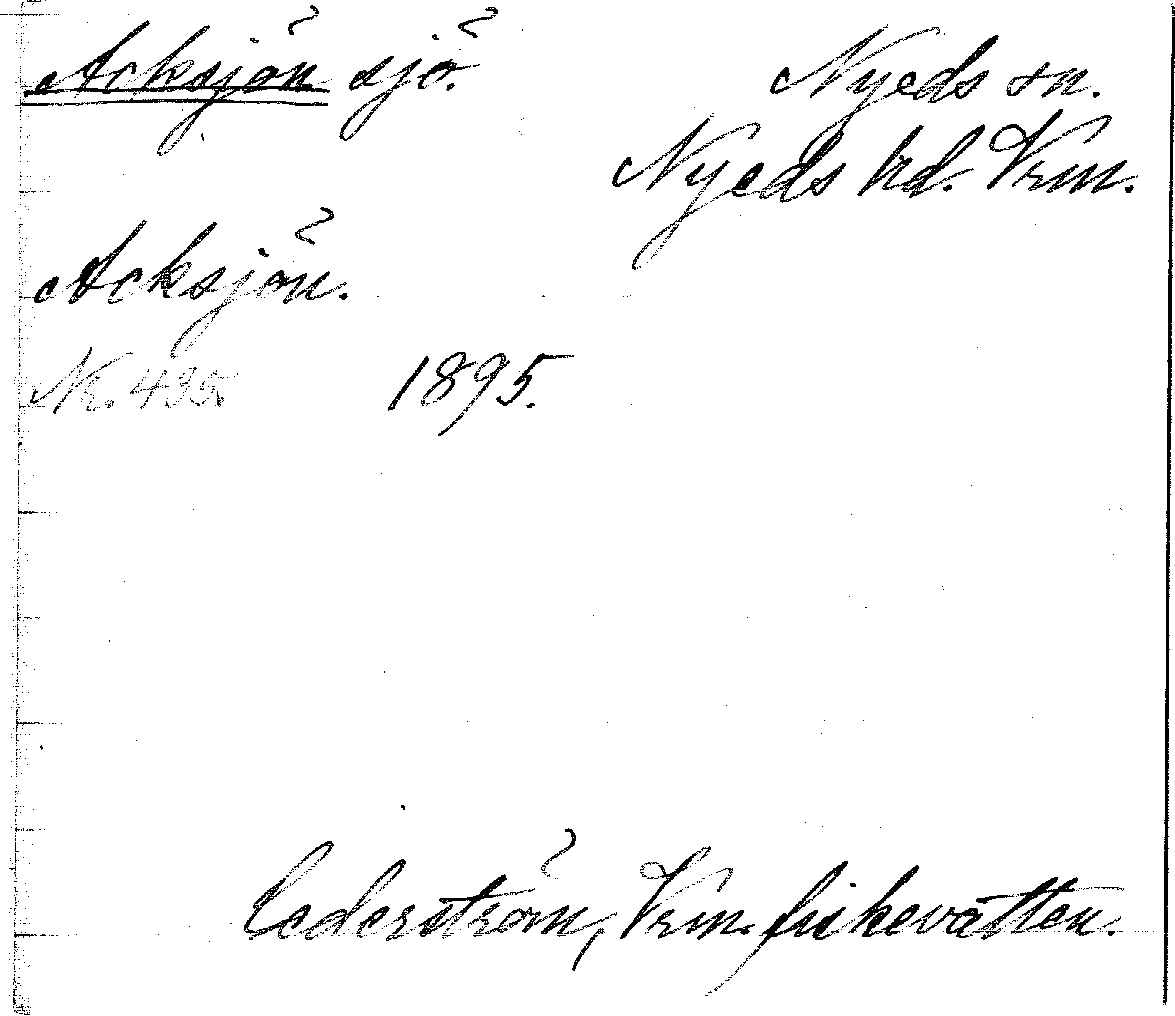 Acksjön sjö. Nyeds sn.
Nyeds hd. Vrm.
Acksjön.
Nr. 435. 1895.
Cederström, Vrm. fiskevatten.